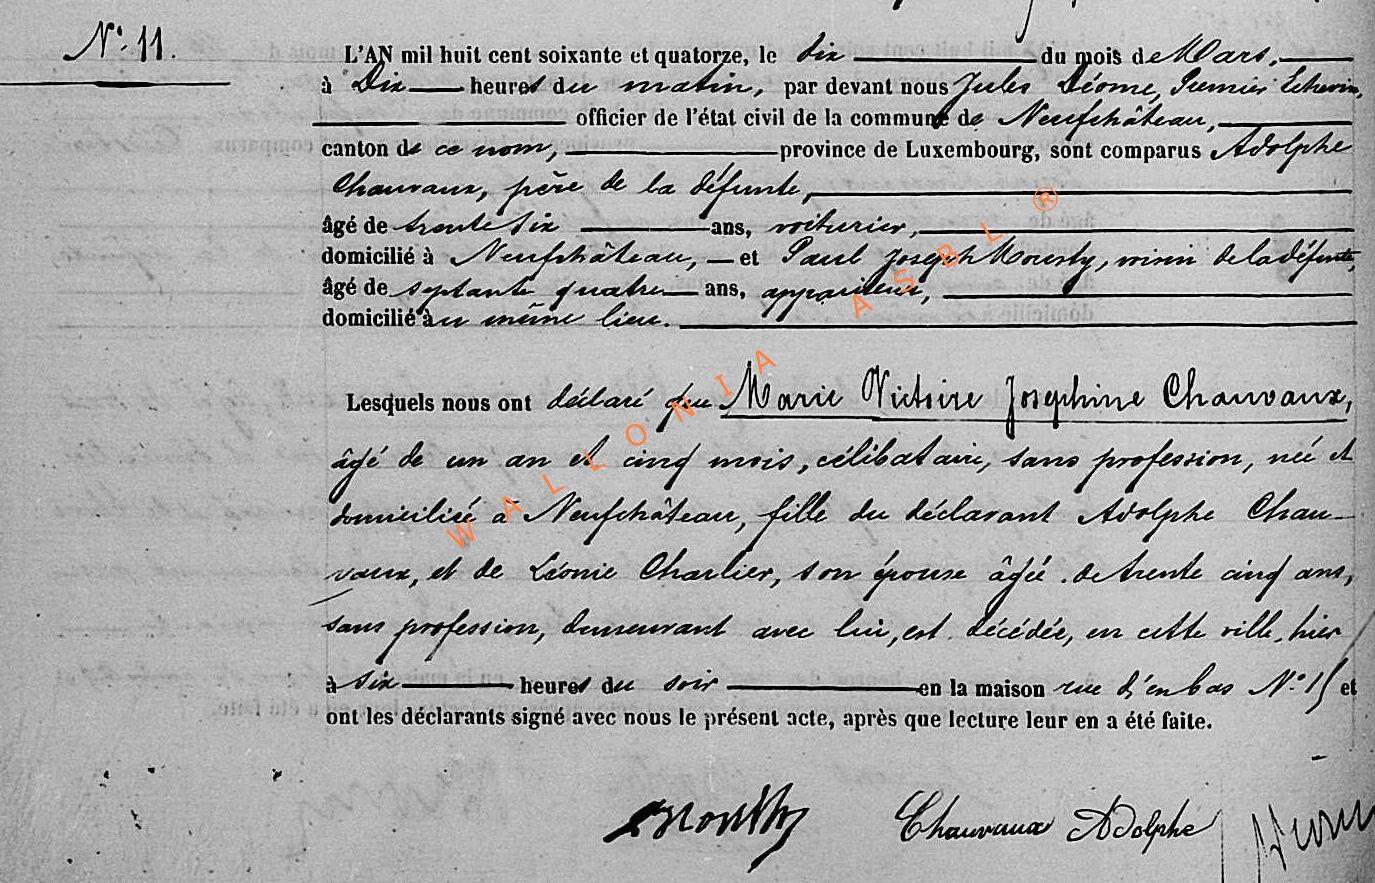 N° 11.
L'AN mil huit cent soixante et quatorze, le dix du mois de Mars,
à Dix heures du matin, par devant nous Jules Déome, Premier Echevin,
officier de l'état civil de la commune de Neufchâteau,
canton de ce nom, province de Luxembourg, sont comparus Adolphe
Chauvaux, père de la défunte,
âgé de trente six ans, voiturier,
domicilié à Neufchâteau, et Paul Joseph Mousty, voisin de la défunte,
âgé de septante quatre ans, appariteur,
domicilié au même lieu.
Lesquels nous ont déclaré que Marie Victoire Joséphine Chauvaux,
âgé de un an et cinq mois, célibataire, sans profession, née et
domiciliée à Neufchâteau, fille du déclarant Adolphe Chau-
vaux, et de Léonie Charlier, son épouse âgée de trente cinq ans,
sans profession, demeurant avec lui, est décédée, en cette ville, hier
à six heures du soir en la maison rue d'en bas N° 15 et
ont les déclarants signé avec nous le présent acte, après que lecture leur en a été faite.
Mousty Chauvaux Adolphe
WALLONIA ASBL ®